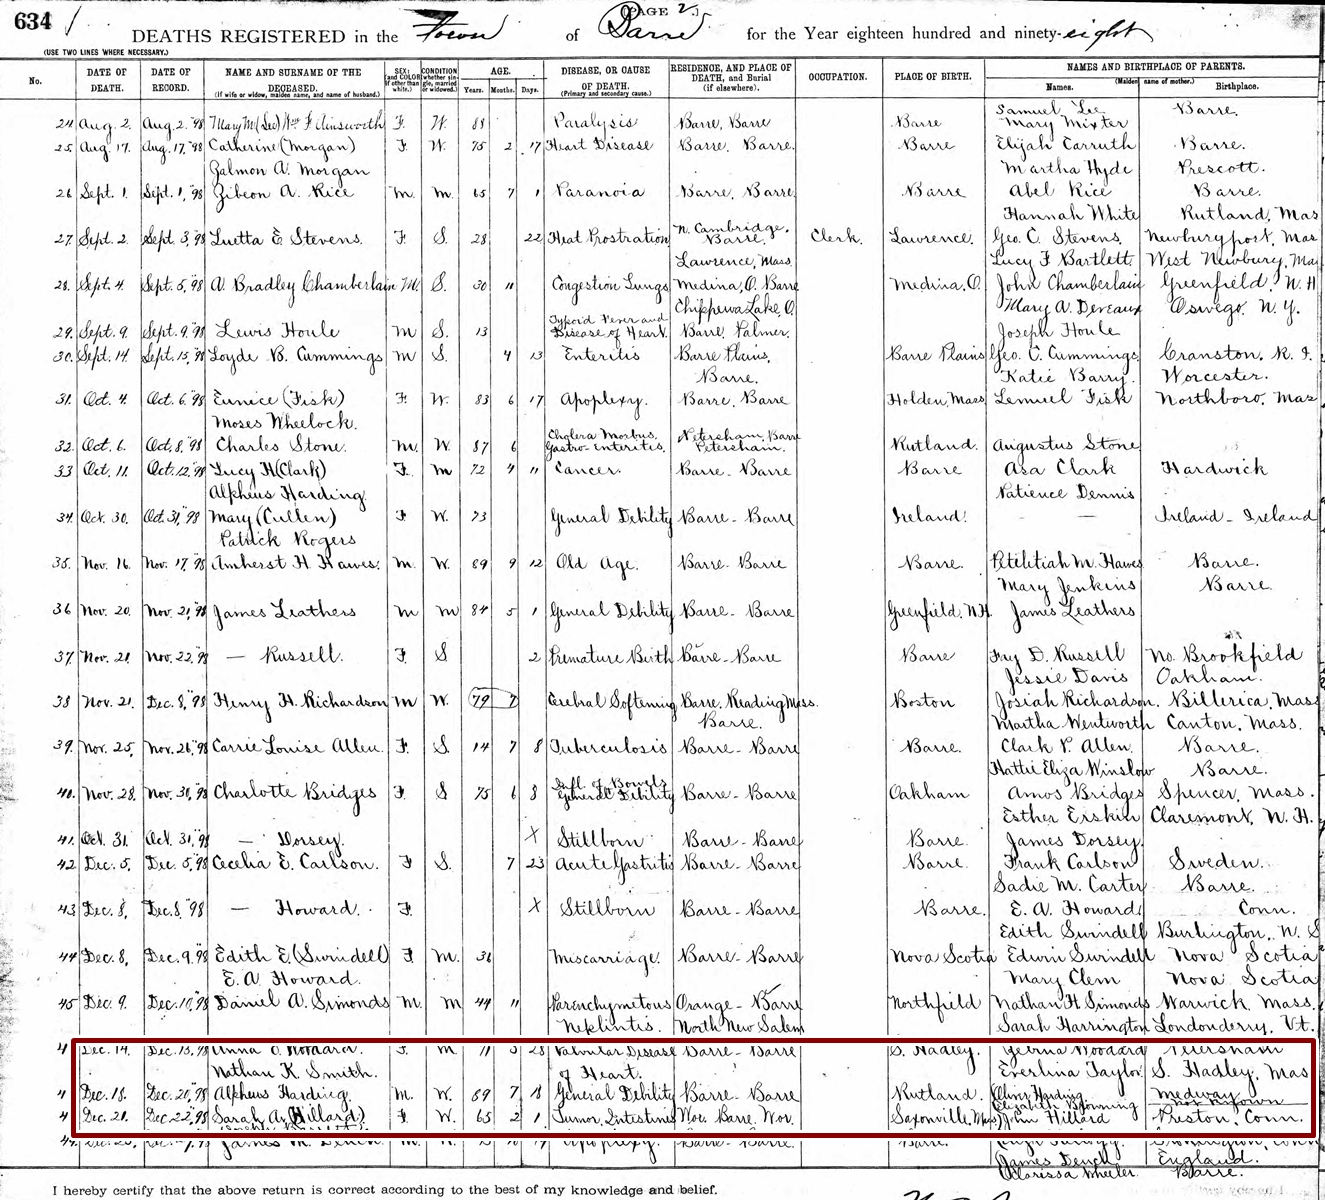 634
[PAGE 2.]
DEATHS REGISTERED in the Town of Barre for the Year eighteen hundred and ninety-eight
(USE TWO LINES WHERE NECESSARY.)
No. DATE OF DEATH. DATE OF RECORD. NAME AND SURNAME OF THE DECEASED. (If wife or widow, maiden name, and name of husband.) SEX: (and COLOR if other than white.) CONDITION (whether single, married or widowed.) AGE. Years. Months. Days. DISEASE, OR CAUSE OF DEATH. (Primary and secondary cause.) RESIDENCE, AND PLACE OF DEATH, and Burial (if elsewhere). OCCUPATION. PLACE OF BIRTH. NAMES AND BIRTHPLACE OF PARENTS. Names. (Maiden name of mother.) Birthplace.
Samuel Lee Barre.
24 Aug. 2. Aug. 2. '98 Mary M (Lee) F Ainsworth F. W. 88 Paralysis Barre, Barre Barre Mary Mixter
25 Aug. 17. Aug. 17, '98 Catherine (Morgan) F. W. 75 2 17 Heart Disease Barre. Barre. Barre Elijah Carruth Barre.
Zalmon A. Morgan Martha Hyde Prescott.
26 Sept. 1. Sept. 1, '98 Gibeon A. Rice M. M. 65 7 1 Paranoia Barre, Barre. Barre Abel Rice Barre.
Hannah White Rutland, Mas
27. Sept. 2. Sept. 3, '98 Luetta E. Stevens. F. S. 28 22 Heat Prostration N. Cambridge, Barre. Clerk. Lawrence. Geo. C. Stevens. Newburyport, Mas
Lawrence, Mass. Lucy F Bartlett. West Newbury, Ma
28. Sept. 4. Sept. 5, '98 A. Bradley Chamberlain M. S. 30 11 Congestion Lungs Medina, O. Barre Medina, O. John Chamberlain Greenfield, N. H
Chippewa Lake, O. Mary A. Dereaux Oswego, N. Y.
29. Sept. 9. Sept. 9, '98 Lewis Houle M S. 13 Typoid Fever and Disease of Heart. Barre, Palmer. Joseph Houle
30. Sept. 14. Sept. 15, '98 Loyde B. Cummings M S. 4 13 Enteritis Barre Plains, Barre Plains Geo. C. Cummings Cranston, R. I.
Barre. Katie Barry. Worcester.
31. Oct. 4. Oct. 6. '98 Eunice (Fisk) F. W. 83 6 17 Apoplexy. Barre. Barre Holden, Mass Lemuel Fisk Northboro, Mas
Moses Wheelock.
32. Oct. 6. Oct. 8. '98 Charles Stone. M. W. 87 6 Cholera Morbus, Gastro-enteritis. Petersham, Barre Petersham. Rutland. Augustus Stone
33 Oct. 11. Oct. 12, '98 Lucy H (Clark) F. M 72 4 11 Cancer. Barre - Barre Barre Asa Clark Hardwick
Alpheus Harding. Patience Dennis
34. Oct. 30. Oct. 31, '98 Mary (Cullen) F W. 73 General Debility Barre - Barre Ireland. — — Ireland - Ireland
Patrick Rogers
35. Nov. 16. Nov. 17, '98 Amherst H Hawes. M. W. 89 9 12 Old Age. Barre - Barre Barre. M. Hawes Barre.
Mary Jenkins Barre
36 Nov. 20. Nov. 21, '98 James Leathers M M 84 5 1 General Debility Barre - Barre Greenfield, N.H. James Leathers
37 Nov. 21. Nov. 22, '98 — Russell. F. S 2 Premature Birth Barre - Barre Barre Fay D. Russell No. Brookfield
Jessie Davis Oakham.
38 Nov. 21. Dec. 8, '98 Henry H. Richardson M W. 79 7 Cerebral Softening Barre. Reading Mass. Boston Josiah Richardson. Billerica, Mass
Barre. Martha Wentworth Canton, Mass.
39. Nov. 25, Nov. 26, '98 Carrie Louise Allen. F. S. 14 7 8 Tuberculosis Barre - Barre Barre. Clark P. Allen. Barre.
Hattie Eliza Winslow Barre.
40. Nov. 28. Nov. 30, '98 Charlotte Bridges F. S 75 6 8 Infl. of Bowels General Debility Barre - Barre Oakham Amos Bridges Spencer, Mass.
Esther Erskin Claremont, N. H.
41. Oct. 31. Oct. 31, '98 — Dorsey. X Stillborn Barre - Barre Barre. James Dorsey.
42 Dec. 5. Dec. 5, '98 Cecelia E. Carlson. F S. 7 23 Acute Gastritis Barre - Barre Barre. Frank Carlson Sweden.
Sadie M. Carter Barre.
43 Dec. 8, Dec. 8, '98 — Howard. F. X Stillborn Barre - Barre Barre. E. A. Howard Conn.
Edith Swindell Burlington, N. S
44 Dec. 8, Dec. 9, '98 Edith E. (Swindell) F M. 36 Miscarriage. Barre - Barre Nova Scotia Edwin Swindell Nova Scotia
E. A Howard. Mary Clem Nova Scotia
45 Dec. 9. Dec. 10, '98 Daniel A. Simonds M. M 44 11 Parenchymatous Orange - Barre Northfield Nathan H Simonds Warwick, Mass.
Nephritis. North New Salem Sarah Harrington Londonderry, Vt.
4 Dec. 14. Dec. 15, '98 Anna Woodard. F. M. 71 3 28 Valvular Disease Barre - Barre S. Hadley. Woodard Petersham
Nathan K. Smith. of Heart. Everlina Taylor S. Hadley, Mas
4 Dec. 18. Dec. 20, '98 Alpheus Harding. M. W. 89 7 18 General Debility Barre - Barre Rutland Oliver Harding. Medway
4 Dec. 21. Dec. 22, '98 Sarah A (Hillard) F W. 65 2 1 Tumor, Intestines Wor. Barre, Wor. Saxonville, Mass John Hillard Preston, Conn.
James M. M. 17 Apoplexy. Barre - Barre Barre.
James England.
Clarissa Wheeler. Barre.
I hereby certify that the above return is correct according to the best of my knowledge and belief.